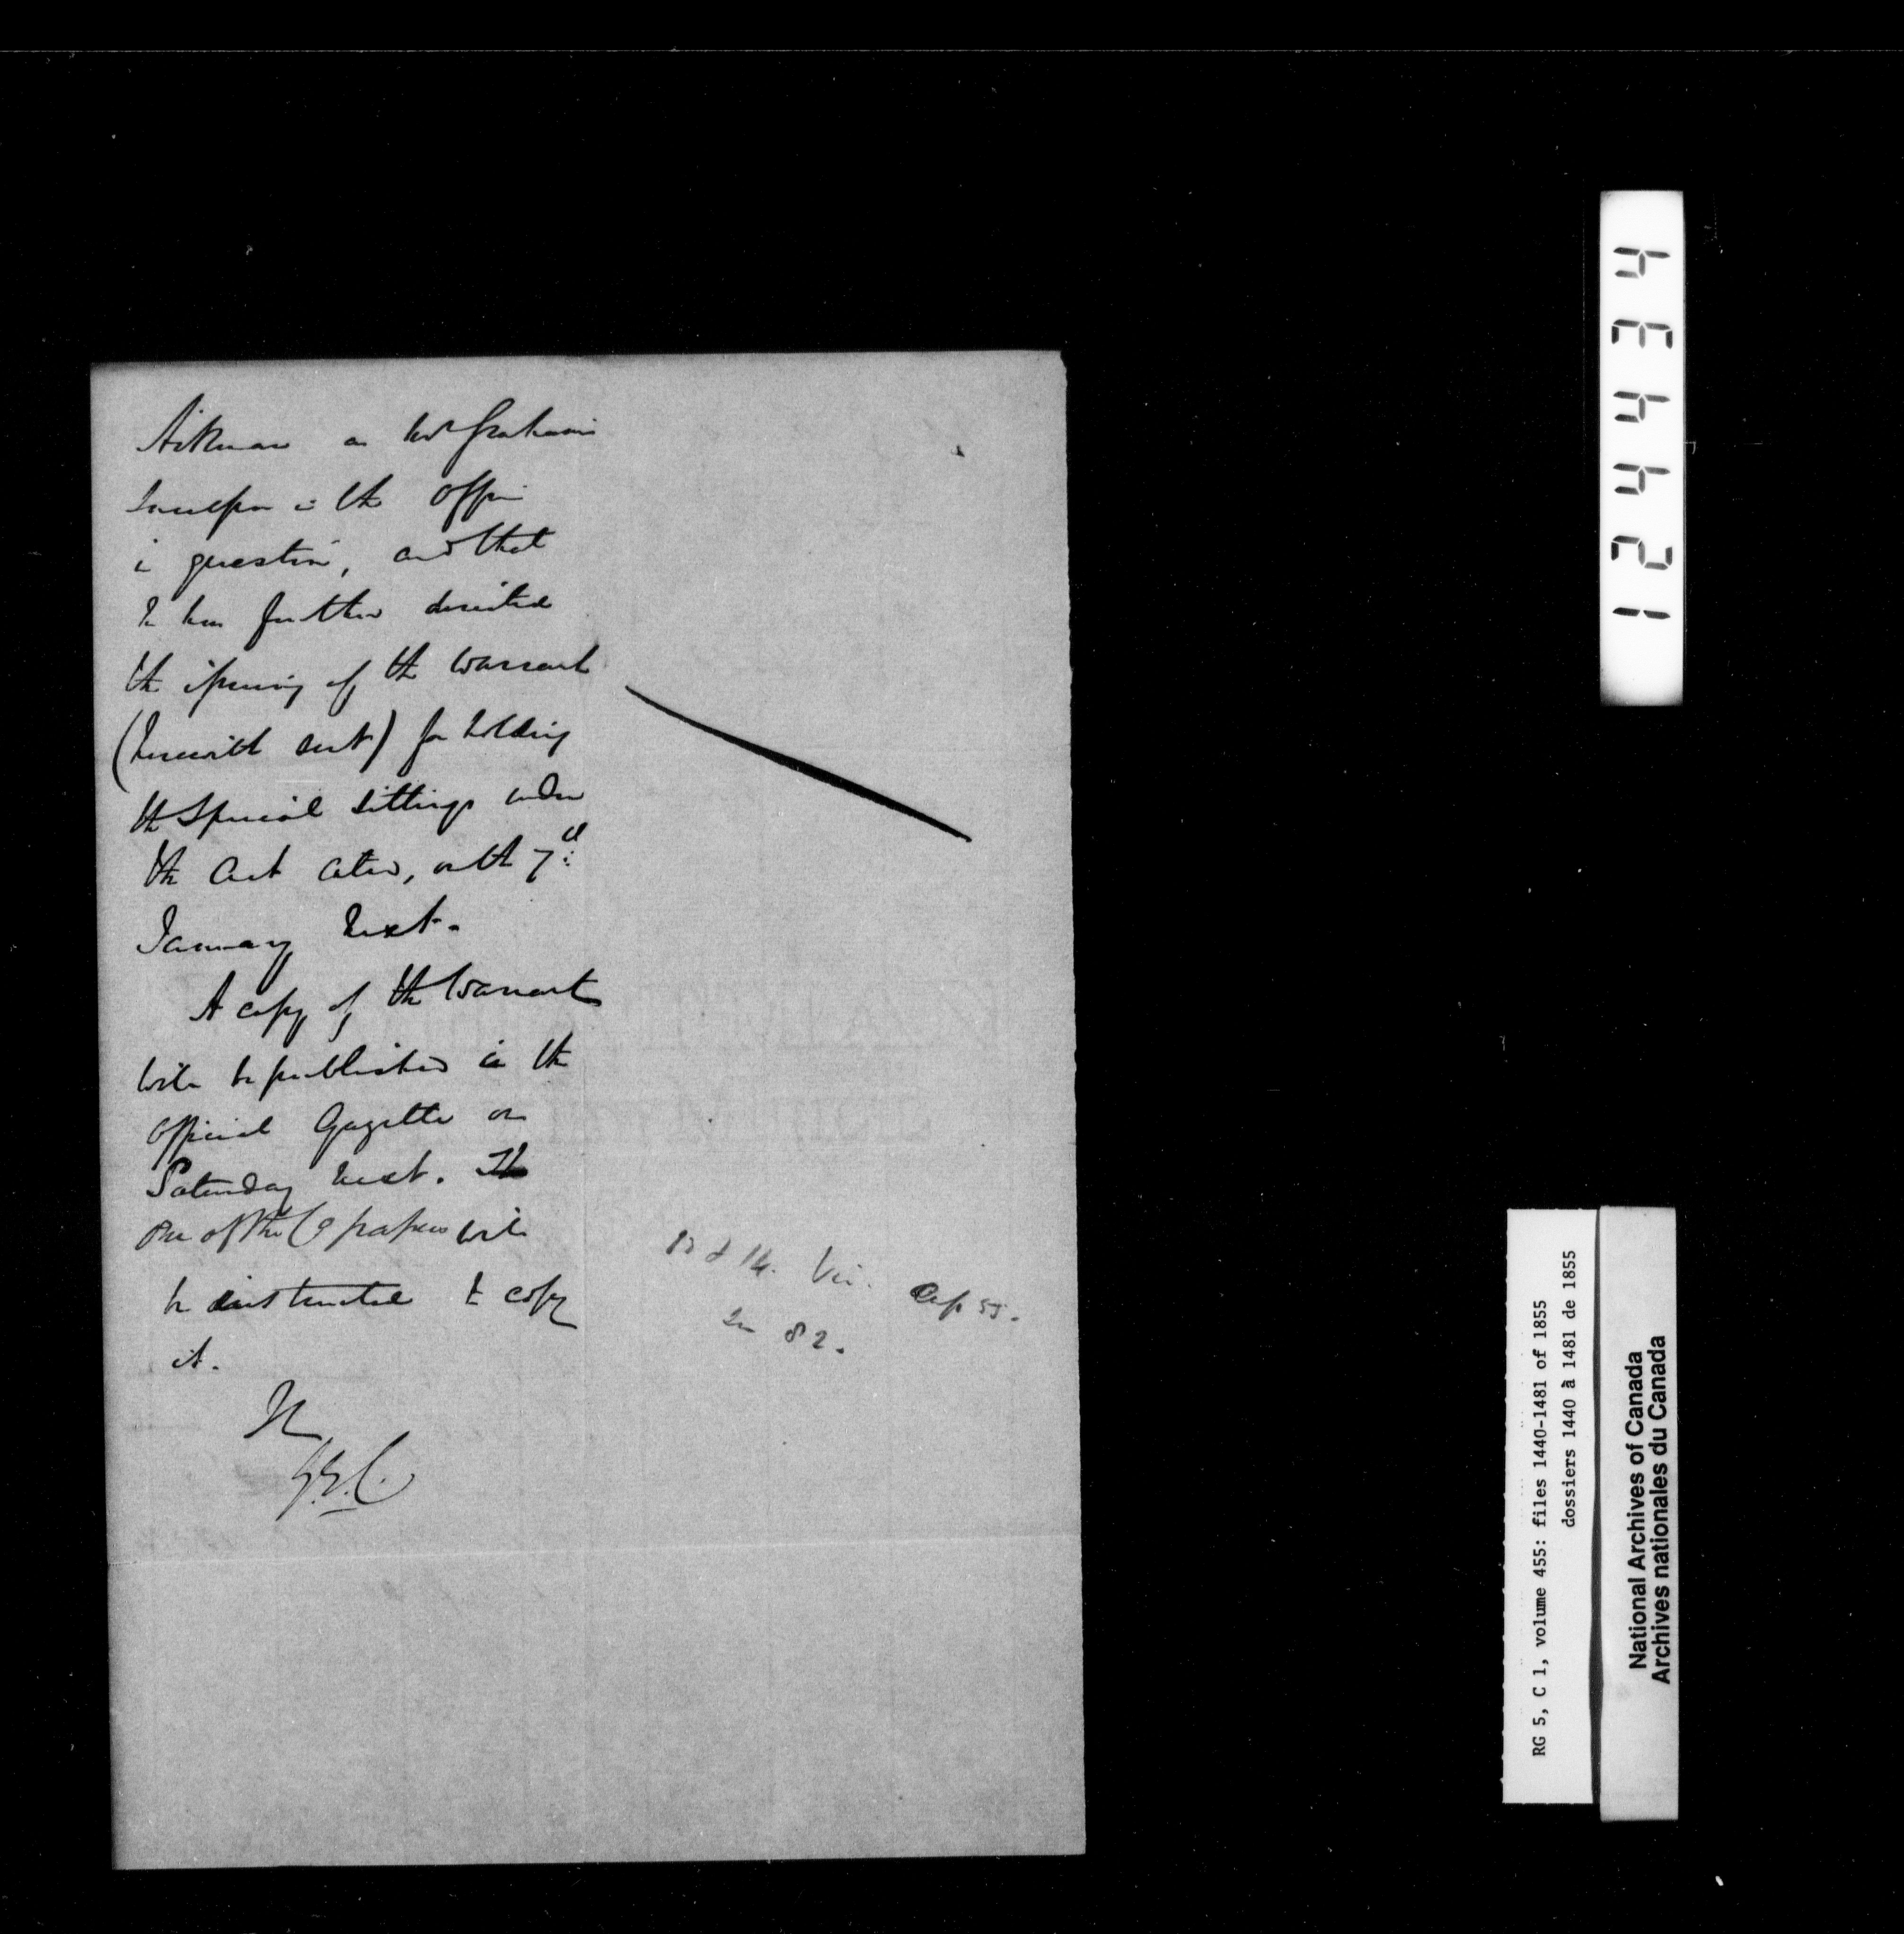 Aikman as Mr Graham's
Successor in the Office
in question, and that
He has further directed
the issuing of the Warrant
(herewith sent) for holding
the Special Sittings under
the Act cited, on the 7th
January next.
A copy of the Warrant
will be published in the
Official Gazette on
Saturday next.
One of the Co papers will
be instructed to copy
it.
13 & 14. Vic. Cap 55.
82.
124434
RG 5, C 1, volume 455: files 1440-1481 of 1855
dossiers 1440 à 1481 de 1855
National Archives of Canada
Archives nationales du Canada